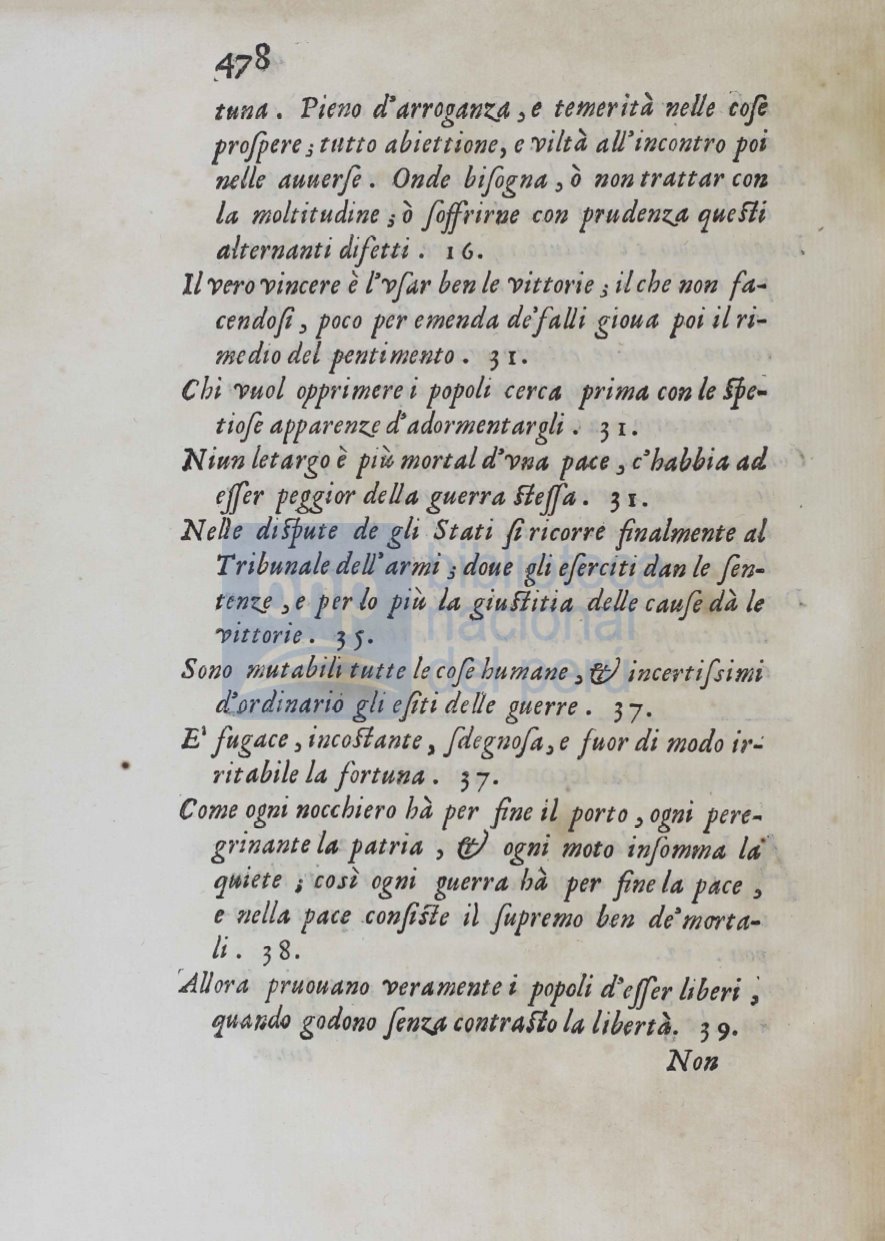 478
tuna. Pieno d'arroganza, e temerità nelle coſe
proſpere; tutto abiettione, e viltà all'incontro poi
nelle auuerſe. Onde biſogna, ò non trattar con
la moltitudine; ò ſoffrirne con prudenza queſti
alternanti difetti. 16.
Il vero vincere è l'vſar ben le vittorie; il che non fa-
cendoſi, poco per emenda de' falli gioua poi il ri-
medio del pentimento. 31.
Chi vuol opprimere i popoli cerca prima con le ſpe-
tioſe apparenze d'adormentargli. 31.
Niun letargo è più mortal d'vna pace, c'habbia ad
eſſer peggior della guerra ſteſſa. 31.
Nelle diſpute de gli Stati ſi ricorre finalmente al
Tribunale dell'armi; doue gli eſerciti dan le ſen-
tenze, e per lo più la giuſtitia delle cauſe dà le
vittorie. 35.
Sono mutabili tutte le coſe humane, & incertiſsimi
d'ordinario gli eſiti delle guerre. 37.
E' fugace, incoſtante, ſdegnoſa, e fuor di modo ir-
ritabile la fortuna. 37.
Come ogni nocchiero hà per fine il porto, ogni pere-
grinante la patria, & ogni moto inſomma la
quiete; così ogni guerra hà per fine la pace,
e nella pace conſiſte il ſupremo ben de' morta-
li. 38.
Allora pruouano veramente i popoli d'eſſer liberi,
quando godono ſenza contraſto la libertà. 39.
Non
biblioteca
nacional
del perú